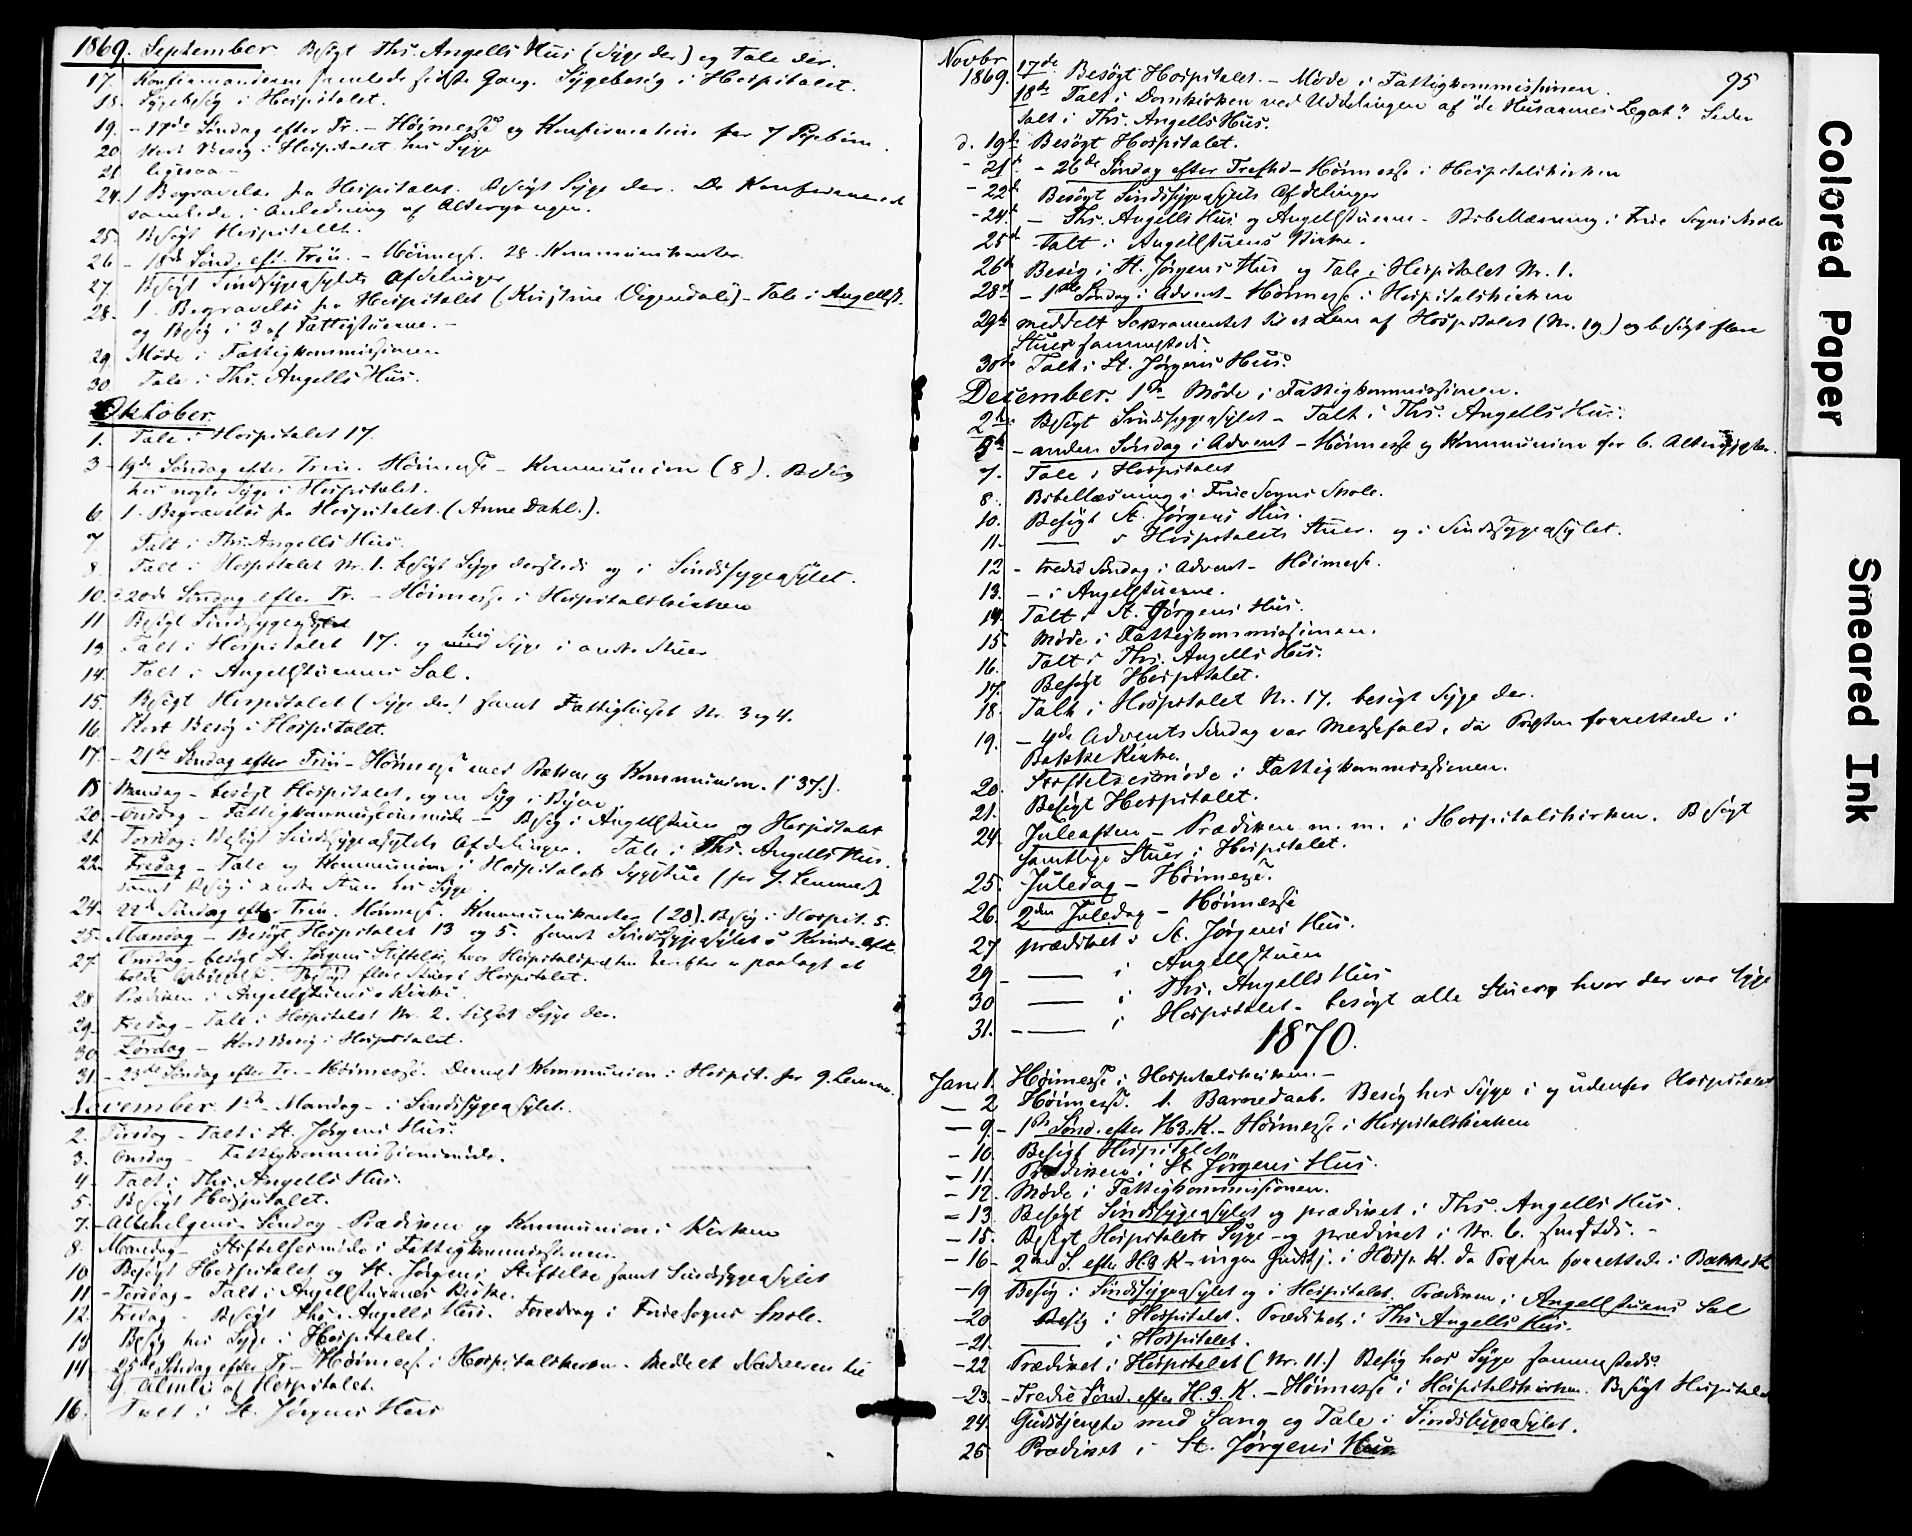 1869. September Besøgt Ths. Angells Hus (Syge der) og Tale der.
17. Konfirmanderne samlede sidste Gang. Sygebesøg i Hospitalet.
18. Sygebesøg i Hospitalet.
19. - 17de Søndag efter Tr. - Høimesse og Konfirmation for 7 Pigebørn.
20 Kort Besøg i Hospitalet hos Syge
21 ligesaa -
24. 1 Begravelse fra Hospitalet. Besøgt Syge der. De Konfirmerede
samlede i Anledning af Altergangen.
25. Besøgt Hospitalet.
26 - 18de Sønd. eft. Trin. - Høimesse. 28 Kommunikanter
27. Besøgt Sindssygeasylets Afdelinger
28. 1. Begravelse fra Hospitalet (Kristine Vigendal) - Tale i Angellst.
og Besøg i 3 af Fattigstuerne. -
29. Møde i Fattigkommissionen
30. Tale i Ths. Angells Hus.
Oktober.
1. Tale i Hospitalet 17.
3 - 19de Søndag efter Trin. Høimesse - Kommunion (8). Besøg
hos nogle Syge i Hospitalet.
6. 1. Begravelse fra Hospitalet. (Anne Dahl.).
7. Talt i Ths. Angells Hus.
8. Talt i Hospitalet Nr. 1. besøgt Syge dersteds og i Sindssygeasylet.
10. - 20de Søndag efter Tr. - Høimesse i Hospitalskirken
11 Besøgt Sindssygeasylet
13. Talt i Hospitalet 17. og hos Syge i andre Stuer
14. Talt i Angellstuernes Sal.
15. Besøgt Hospitalet (Syge der) samt Fattighuset Nr. 3 og 4.
16. Kort Besøg i Hospitalet.
17. - 21de Søndag efter Trin - Høimesse med Bøtsen og Kommunion. (37.).
18 Mandag - besøgt Hospitalet, og en Syg i Byen.
20. Onsdag - Fattigkommissionsmøde - Besøg i Angellstuen og Hospitalet
21. Torsdag: Besøgt Sindssygeasylets Afdelinger. Tale i Ths. Angells Hus.
22. Fredag - Tale og Kommunion i Hospitalets Sygestue (for 7. Lemmer)
samt Besøg i andre Stuer hos Syge.
24. 22de Søndag efter Trin. Høimesse. Kommunikanter (28). Besøg i Hospit. 5.
25. Mandag - Besøgt Hospitalet 13 og 5. samt Sindssygeasylets Kvinde Afd.
27. Onsdag - besøgt St. Jørgens Stiftelse, hvor Hospitalspresten herefter er paalagt at
holde Opbyggelse. flere Stuer i Hospitalet.
28. Prædiken i Angellstuens Kirke.
29. Fredag - Tale i Hospitalet Nr. 2. tilset Syge der.
30. Lørdag - Kort Besøg i Hospitalet.
31. - 23de Søndag efter Tr. - Høimesse. Dernæst Kommunion i Hospit. for 9. Lemmer.
November. 1ste Mandag - i Sindssygeasylet.
2. Tirsdag - Talt i St. Jørgens Hus.
3. Onsdag - Fattigkommissionsmøde.
4. Talt i Ths. Angells Hus.
5. Besøgt Hospitalet.
7. - Allehelgens Søndag - Prædiken og Kommunion i Kirken
8. Mandag - Stiftelsesmøde i Fattigkommissionen
10 Besøgt Hospitalet og St. Jørgens Stiftelse samt Sindssygeasylet
11 - Torsdag - Talt i Angellstuernes Kirke.
12. Fredag - Besøgt Ths. Angells Hus. Foredrag i Frue Sogns Skole.
13 Besøg hos Syge i Hospitalet.
14 - 25de Søndag efter Tr - Høimesse i Hospitalskirken - Meddelt Nadveren til
G. Almli af Hospitalet.
16. Talt i St. Jørgens Hus
Novbr 1869. 17de Besøgt Hospitalet. - Møde i Fattigkommissionen. 95
18de Talt i Domkirken ved Uddelingen af "de Husarmes Legat". Siden
talt i Ths. Angells Hus.
d. 19de Besøgt Hospitalet.
- 21. - 26de Søndag efter Trefhd - Høimesse i Hospitalskirken
- 22. Besøgt Sindssygeasylets Afdelinger
- 24. - Ths. Angells Hus og Angellstuerne - Bibellæsning i Frue Sogns Skole
25de - Talt i Angellstuens Kirke.
26de Besøg i St. Jørgens Hus og Tale i Hospitalet Nr. 1.
28de - 1ste Søndag i Advent - Høimesse i Hospitalskirken
29de meddelt Sakramentet til et Lem af Hospitalet (Nr. 19) og besøgt flere
Stuer sammesteds.
30de Talt i St. Jørgens Hus.
December. 1ste Møde i Fattigkommissionen.
2de Besøgt Sindssygeasylet - Talt i Ths. Angells Hus.
5de - anden Søndag i Advent - Høimesse og Kommunion for 6. Altergjester.
7. Tale i Hospitalet
8. Bibellæsning i Frue Sogns Skole.
10. Besøgt St. Jørgens Hus.
11. —— Hospitalets Stuer. og i Sindssygeasylet.
12 - tredie Søndag i Advent - Høimesse.
13. - i Angellstuerne.
14. Talt i St. Jørgens Hus.
15. Møde i Fattigkommissionen.
16. Talt i Ths. Angells Hus.
17. Besøgt Hospitalet.
18. Talt i Hospitalet Nr. 17. besøgt Syge der.
19. - 4de Advents Søndag var Messefald, da Presten forrettede i
Bakke Kirke.
20. Stiftelsesmøde i Fattigkommissionen.
21. Besøgt Hospitalet.
24. Juleaften - Prædiken m. m. i Hospitalskirken. Besøgt
samtlige Stuer i Hospitalet.
25. Juledag - Høimesse.
26. 2den Juledag - Høimesse
27 prædiket i St. Jørgens Hus.
29 —— i Angellstuen
30 —— i Ths. Angells Hus
31. —— i Hospitalet - besøgt alle Stuer, hvor der var Syge
1870.
Janr 1. Høimesse i Hospitalskirken. -
— 2 Høimesse. 1. Barnedaab. Besøg hos Syge i og udenfor Hospitalet
— 9 - 1ste Sønd. efter H3.K. - Høimesse i Hospitalskirken
- 10. Besøgt Hospitalet
- 11. Prædiken i St Jørgens Hus.
- 12. Møde i Fattigkommissionen.
- 13 Besøgt Sindssygeasylet og prædiket i Ths. Angells Hus.
- 15. Besøgt Hospitalets Syge - og prædiket i Nr. 6. smstds. -
- 16 - 2den S. efter H3K - ingen Gudstj. i Hosp. K. da Presten forrettede i Bakke K
- 19 Besøg i Sindssygeasylet og i Hospitalet. Prædiken i Angellstuens Sal
- 20 Besøg i Hospitalet. Prædiket i Ths Angells Hus.
- 21. —— i Hospitalet.
- 22 Prædiket i Hospitalet (Nr. 11.) Besøg hos Syge sammesteds.
- 23. - Tredie Sønd. efter H. 3. K. - Høimesse i Hospitalskirken. Besøgt Hospitalet
- 24. Gudstjeneste med Sang og Tale i Sindssygeasylet.
- 25 Prædiket i St. Jørgens Hus
Colored Paper
Smeared Ink